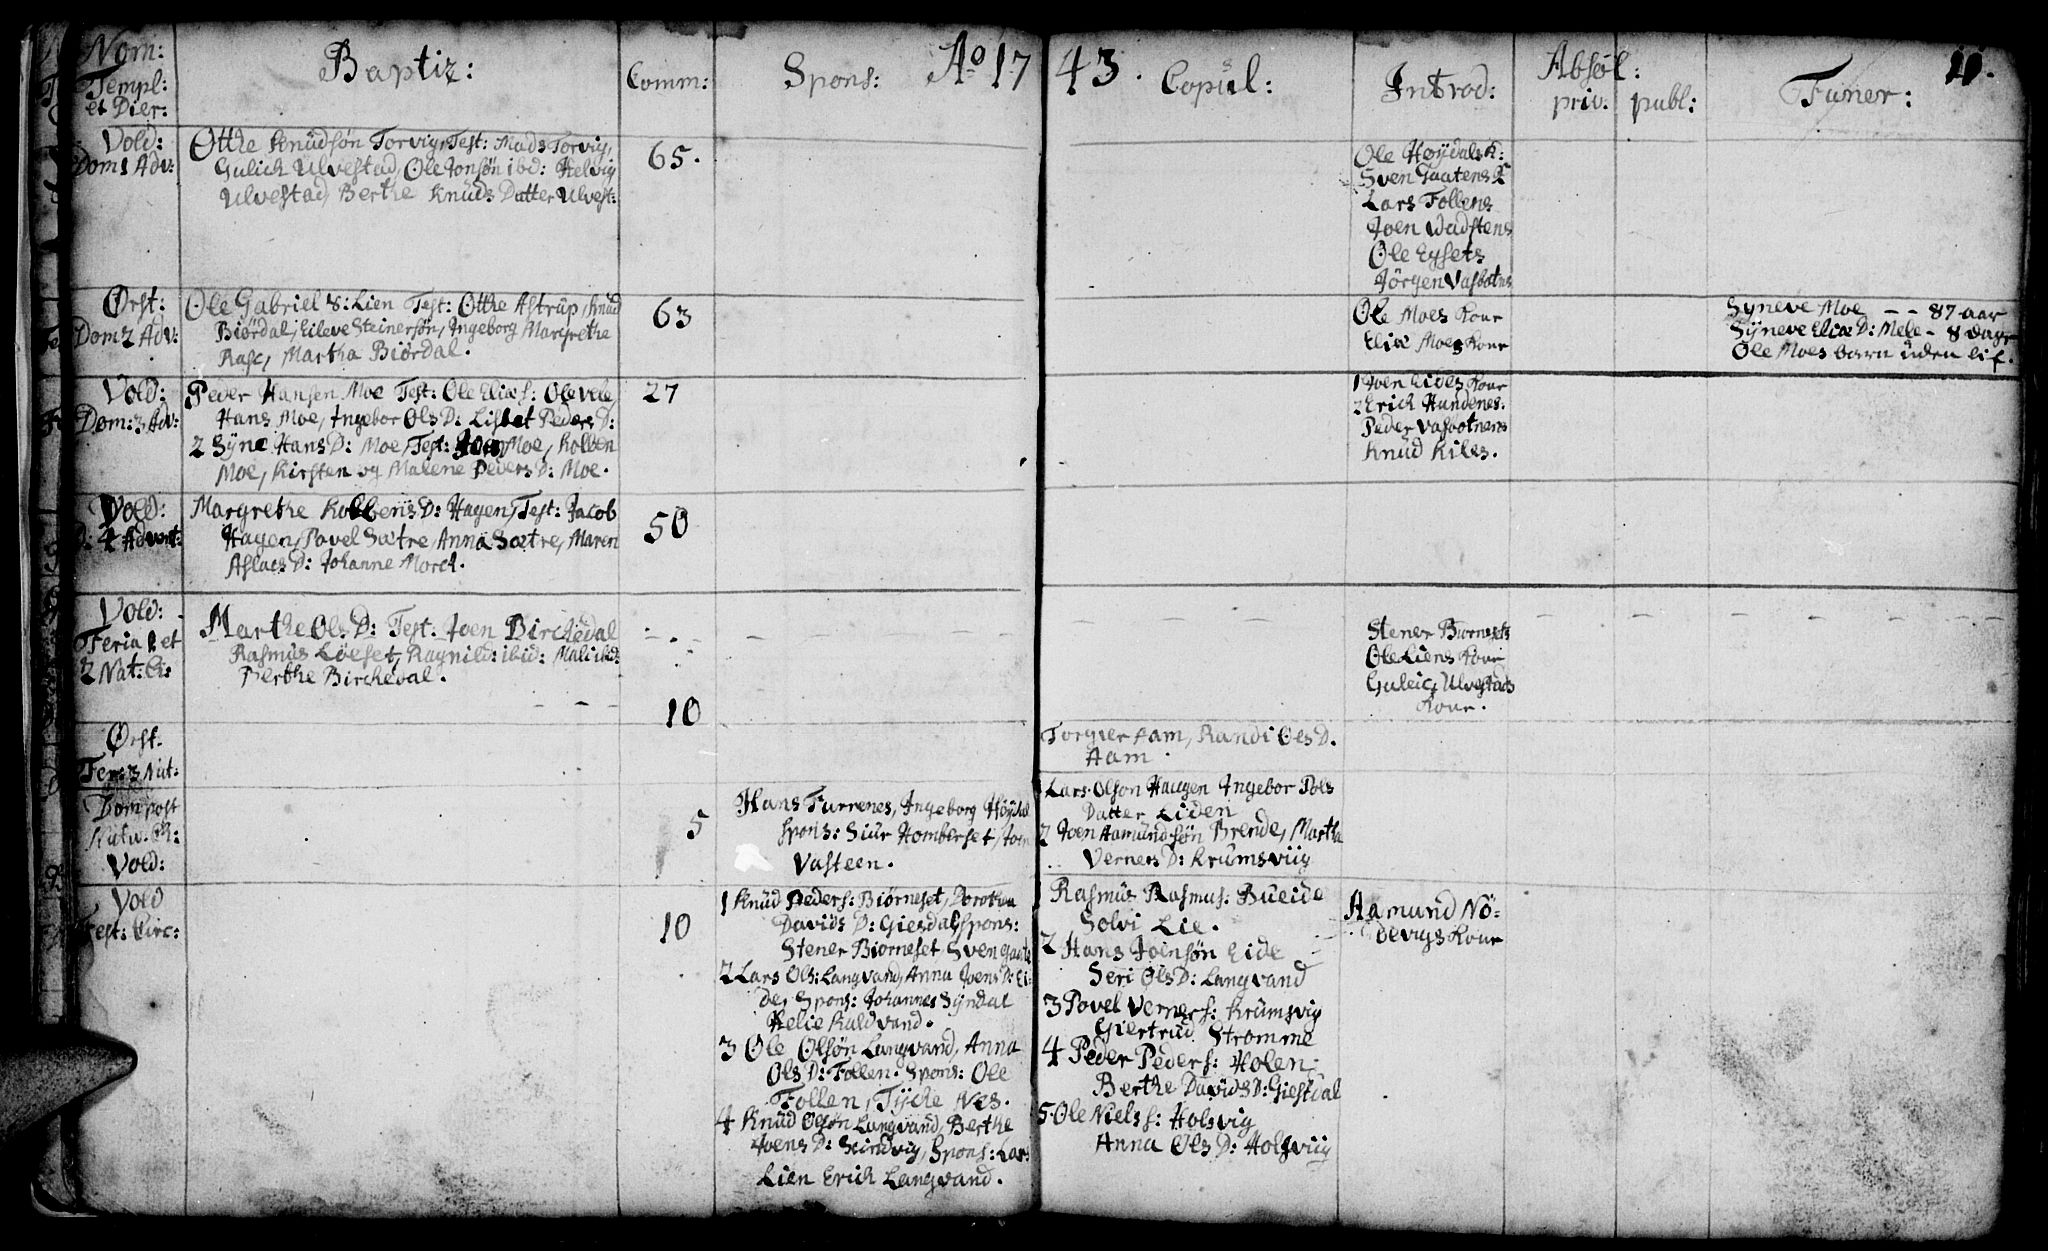 Nom:
Templ:
et Dier:
Baptiz:
Comm:
Spons:
Ao 17 43.
Copul:
Introd:
Absol:
priv: publ:
Funer:
11.
Vold:
Dom 1 Adv:
Otthe Knudsøn Torvig, Test: Mads Torvig,
Gulick Ulvestad, Ole Jonsøn ibd: Helvig
Ulvestad, Berthe Knuds Datter Ulvest:
65.
Ole Høydals K:
Sven Gaatens K
Lars Follens
Joen Vadstens
Ole Eysets
Jörgen Vasbotns
Ørst:
Dom 2 Adv:
Ole Gabriel S: Lien Test: Otthe Astrup, Knud
Biørdal, Eileve Steinersøn, Ingeborg Margrethe
Rasc, Martha Biørdal.
63
Ole Moes Kone
Eliæ Moes Kone
Syneve Moe - - 87 aar
Syneve Eliæ D: Mele - 8 dage
Ole Moes barn uden lif.
Vold:
Dom: 3 Adv:
Peder Hansen Moe Test: Ole Eliæ s: Ole Vele
Hans Moe, Ingebor Ols D: Lisbet Peders D:
2 Syne Hans D: Moe, Test: Joen Moe, Kolben
Moe, Kirsten og Malene Peders D: Moe.
27
1 Joen Eides Kone
2 Erick Hundenes:
Peder Vasbotnens
Knud Kiles.
Vold:
D: 4 Advent:
Margrethe Kolbens D: Hagen, Test: Jacob
Hagen, Povel Sætre, Anna Sætre, Maren
Aslacs D: Johanne Morck.
50
Vold:
Feria 1 et
2 Nat: C:
Marthe Ols D: Test: Joen Birckedal
Rasmus Løeset, Ragnild: ibid: Mali ibd:
Berthe Birckedal.
10
Stener Biørnesets
Ole Liens Kone
Guleic, Ulvestads
Kone.
Ørst.
Fer: 3 Nat:
Torgier Aam, Randi Ols D.
Aam.
Dom post
Nativ. C:
Vold:
5
Hans Furrenes, Ingeborg Höydal
Spons: Siur Homberset, Joen
Vasteen.
1 Lars Olson Haugen Ingebor Pols
Datter Liden
2 Joen Hamundsøn Brende, Martha
Verners D: Krumsviig
Vold
Fest: Circ:
10
1 Knud Peders: Biørneset, Dorothea
Davids D: Giesdal, Spons:
Stener Biørneset Sven Gaate
2 Lars Ols: Langvand, Anna Joens D: Ei-
de, Spons: Johannes Syndal
Helie Kaldvand.
3 Ole Olsøn Langvand, Anna
Ols D: Follen. Spons: Ole
Follen, Tyche Nes.
4 Knud Olsøn Langvand, Berthe
Joens D: Seindvig, Spons: Lars
Lien Erich Langvand.
1 Rasmus Rasmus: Bueide
Solvi Lie.
2 Hans Joensøn Eide
Seri Ols D: Langvand
3 Povel Verners: Krumsvig
Giertrud Strømme
4 Peder Peders: Holen
Berthe Davids D: Giestdal
5. Ole Niels s: Holsvig
Anna Ols D: Holsviig
Aamund Nö-
devigs Kone